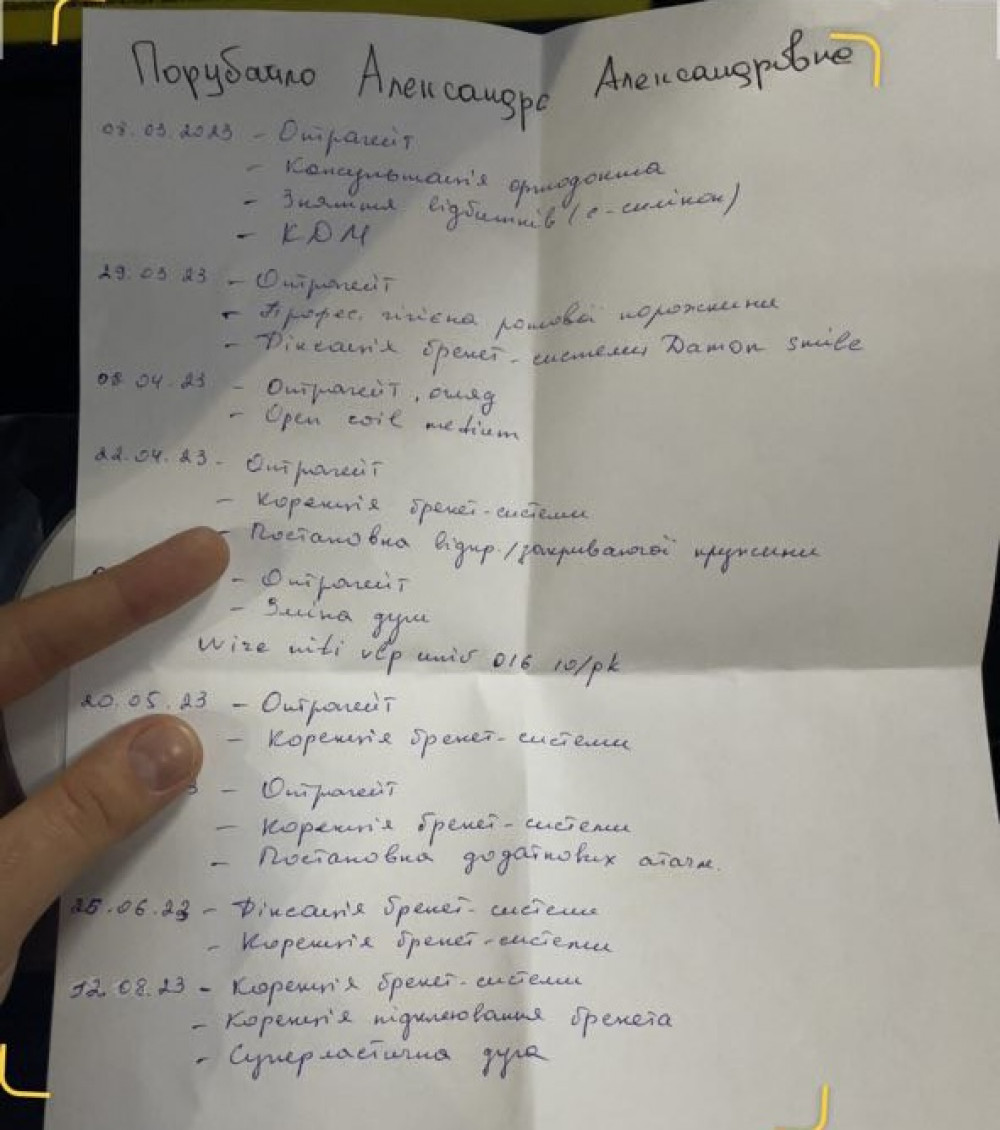 Порубайло Александра Александровна
08.03.2023 - Оптрагейт
- Консультація ортодонта
- Зняття відбитків (с-силікон)
- КДМ
29.03 23 - Оптрагейт
- Профес. гігієна ротової порожнини
- Фіксація брекет-системи Damon smile
08 04.23 - Оптрагейт, огляд
- Open coil medium
22.04.23 - Оптрагейт
- Корекція брекет-системи
- Постановка відкр./закриваючої пружини
- Оптрагейт
- Зміна дуги
Wire niti vlp univ 016 10/pk
20.05.23 - Оптрагейт
- Корекція брекет-системи
- Оптрагейт
- Корекція брекет-системи
- Постановка додаткових атачм.
25.06.23 - Фіксація брекет-системи
- Корекція брекет-системи
12.08.23 - Корекція брекет-системи
- Корекція підклеювання брекета
- Суперластична дуга